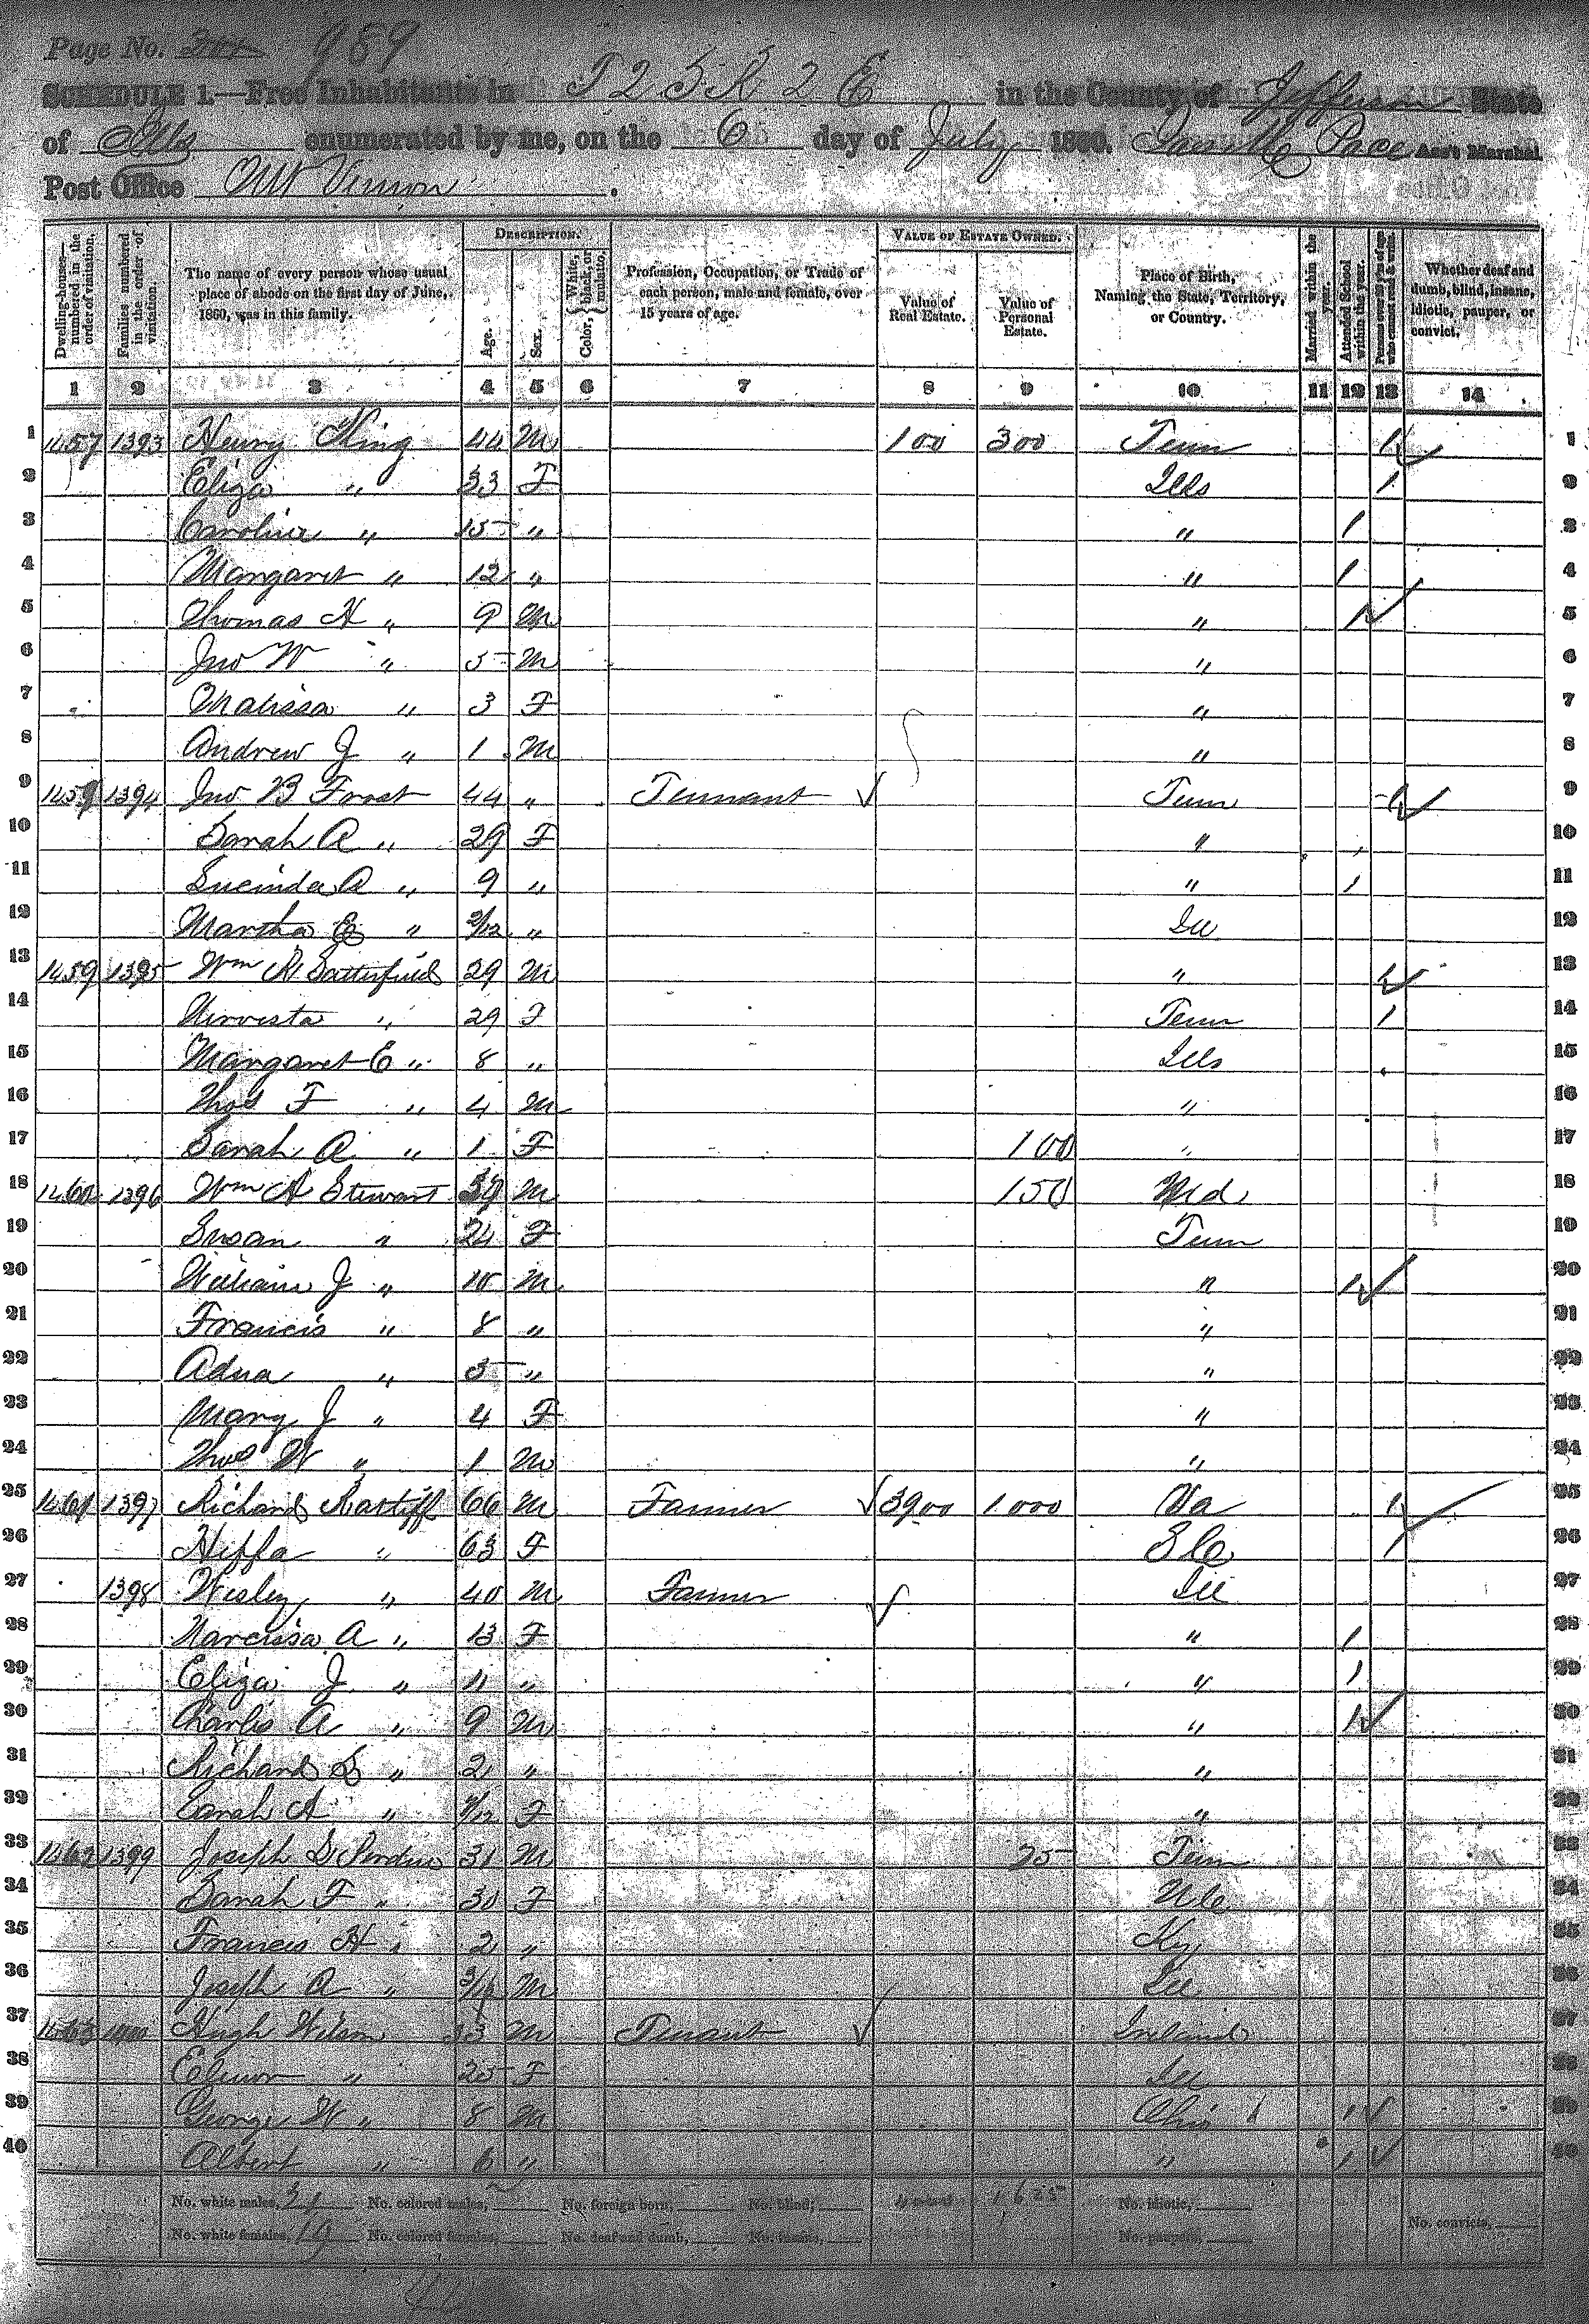 Page No. 989
SCHEDULE 1.—Free Inhabitants in T 2 S R 2 E in the County of Jefferson State
of Ills enumerated by me, on the 6 day of July 1860. Pace Ass't Marshal
Post Office Mt Vernon.
DESCRIPTION. VALUE OF ESTATE OWNED.
Dwelling-houses—numbered in the order of visitation. Families numbered in the order of visitation. The name of every person whose usual place of abode on the first day of June, 1860, was in this family. Age. Sex. Color, {White, black, or mulatto. Profession, Occupation, or Trade of each person, male and female, over 15 years of age. Value of Real Estate. Value of Personal Estate. Place of Birth, Naming the State, Territory, or Country. Married within the year. Attended School within the year. Persons over 20 y'rs of age who cannot read & write. Whether deaf and dumb, blind, insane, idiotic, pauper, or convict.
1 2 3 4 5 6 7 8 9 10 11 12 13 14
1 1457 1393 Henry King 44 M 100 300 Tenn 1 1
2 Eliza " 33 F Ills 1 2
3 Caroline " 15 " " 1 3
4 Margaret " 12 " " 1 4
5 Thomas H " 9 M " 1 5
6 Jno W " 5 M " 6
7 Malissa " 3 F " 7
8 Andrew J " 1 M " 8
9 1458 1394 Jno B Frost 44 " Tennant Tenn 1 9
10 Sarah A " 29 F " 10
11 Lucinda A " 9 " " 1 11
12 Martha E " 2/12 " Ill 12
13 1459 1395 Wm R Satterfield 29 M " 1 13
14 29 F Tenn 1 14
15 Margaret E " 8 " Ills 15
16 Thos F " 4 M " 16
17 Sarah A " 1 F 100 " 17
18 1460 1396 Wm A Stewart 39 M 150 Md 18
19 Susan " 24 F Tenn 19
20 William J " 10 M " 1 20
21 Francis " 8 " " 21
22 Adna " 5 " " 22
23 Mary J " 4 F " 23
24 Thos W " 1 M " 24
25 1461 1397 Richard Ratliff 66 M Farmer 3900 1000 Va 1 25
26 Heffla " 63 F S C 1 26
27 1398 Wesley " 40 M Farmer Ill 27
28 Narcissa A " 13 F " 1 28
29 Eliza J " 11 " " 1 29
30 Charles A " 9 M " 1 30
31 Richard D " 2 " " 31
32 Sarah A " F " 32
33 1462 1399 Joseph D Perdue 31 M 75 Tenn 33
34 Sarah F " 30 F N C 34
35 Francis H " 2 " Ky 35
36 Joseph A " M Ill 36
37 1463 1400 Hugh Wilson 33 M Tenant Ireland 37
38 Elinor " 25 F Ill 38
39 George W " 8 M Ohio 1 39
40 Albert " 6 " " 1 40
No. white males, 21 No. colored males, No. foreign born, No. blind, 4000 1625 No. idiotic,
No. white females, 19 No. colored females, No. deaf and dumb, No. insane, No. paupers, No. convicts,